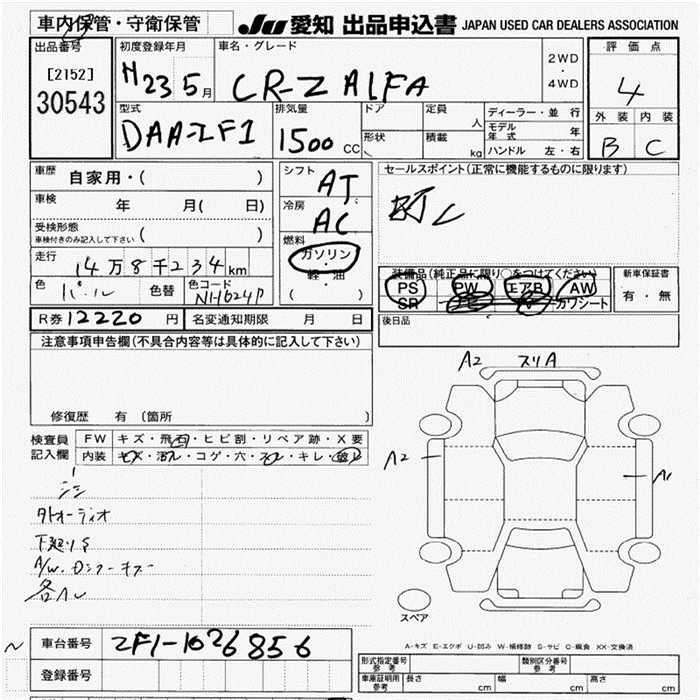 車内保管・守衛保管
JU 愛知 出品申込書 JAPAN USED CAR DEALERS ASSOCIATION
出品番号
[2152]
30543
初度登録年月
H23 5月
車名・グレード
CR-Z ALFA
2WD
・
4WD
評価点
4
外装 内装
B C
型式
DAA-ZF1
排気量
1500 CC
ドア
形状
定員 人
積載 kg
ディーラー・並行
モデル年式 年
ハンドル 左・右
車歴 自家用・( )
車検 年 月( 日)
受検形態
車検付きのみ記入して下さい ( )
走行 14万8千234km
色 パール 色替 色コード NH624P
シフト AT
冷房 AC
燃料
ガソリン
・
軽油
( )
セールスポイント(正常に機能するものに限ります)
装備品(純正品に限り○をつけてください)
PS PW エアB AW
SR カワシート
新車保証書
有・無
R券 12220 円 名変通知期限 月 日
後日品
注意事項申告欄(不具合内容等は具体的に記入して下さい)
修復歴 有 (箇所
検査員記入欄
FW キズ・飛石・ヒビ割・リペア跡・X要
内装 キズ・汚れ・コゲ・穴・スレ・キレ・
外オーディオ
下廻りS
A2 スリA
A2
A1
スペア
A-キズ E-エクボ U-凹み W-補修跡 S-サビ C-腐食 XX-交換済
車台番号 ZF1-1026856
登録番号
形式指定番号 参考
類別区分番号 参考
車庫証明用 参考 長さ cm 幅 cm 高さ cm